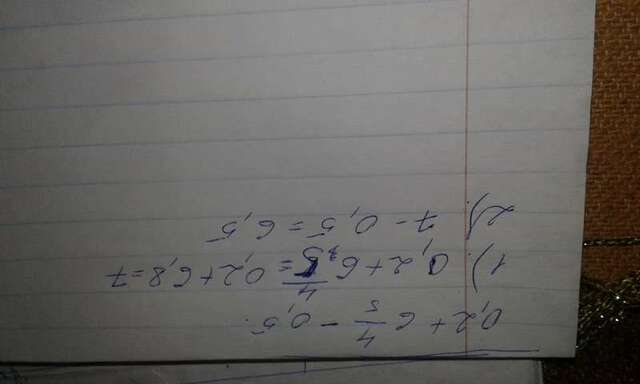 0,2 + 6 4/5 - 0,5.
1). 0,2 + 6 4/5 = 0,2 + 6,8 = 7
2). 7 - 0,5 = 6,5